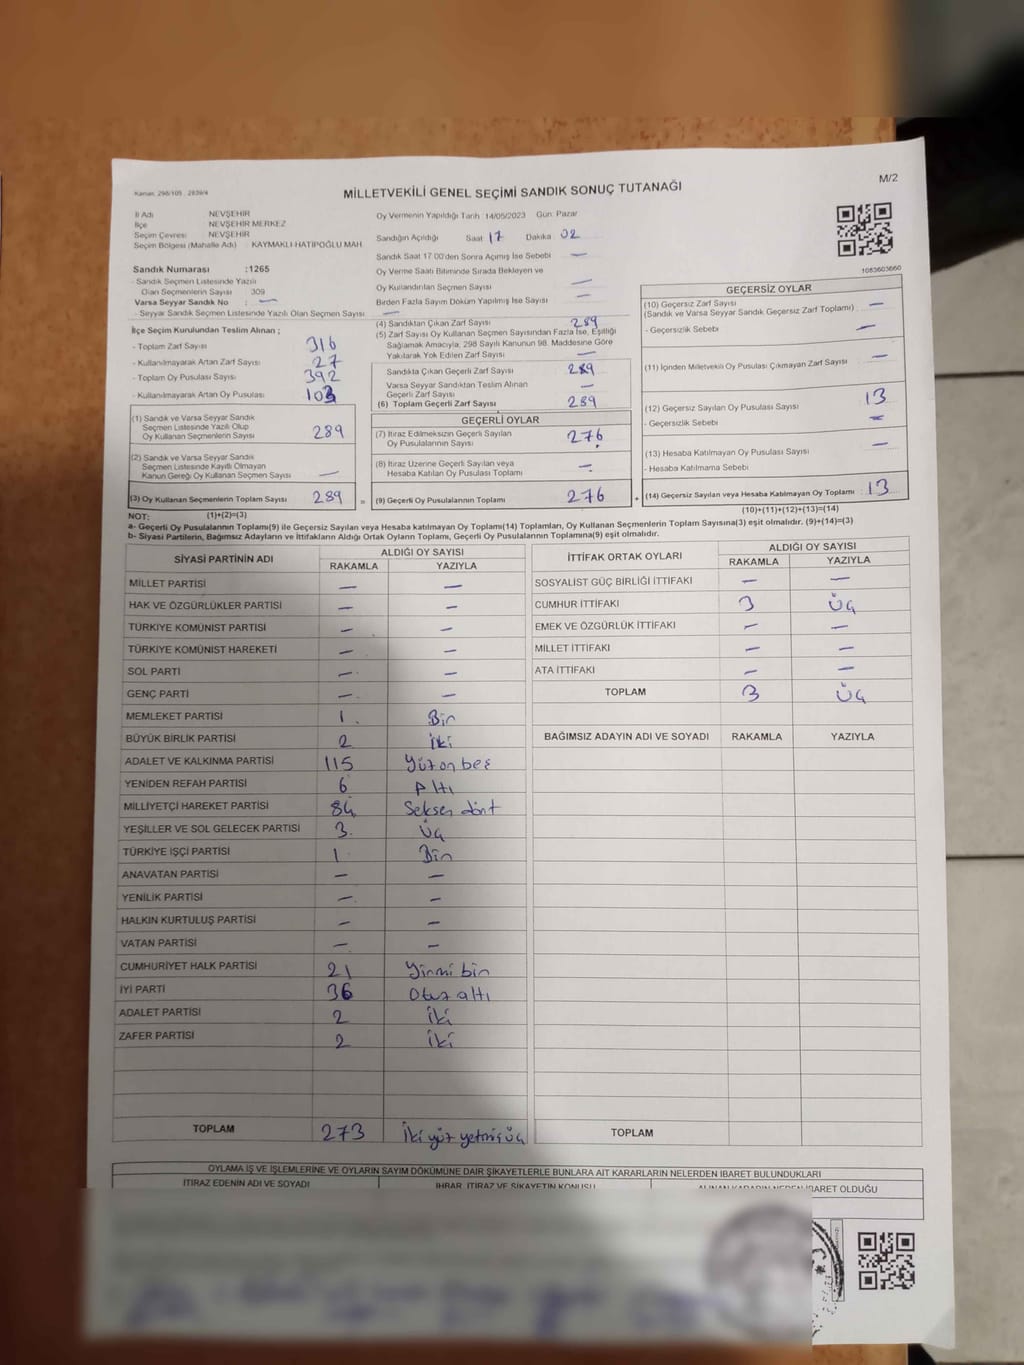 Kanun: 298/105 2839/4
MİLLETVEKİLİ GENEL SEÇİMİ SANDIK SONUÇ TUTANAĞI
M/2
İl Adı NEVŞEHİR
İlçe NEVŞEHİR MERKEZ
Seçim Çevresi NEVŞEHİR
Seçim Bölgesi (Mahalle Adı) KAYMAKLI HATİPOĞLU MAH
Sandık Numarası :1265
- Sandık Seçmen Listesinde Yazılı
Olan Seçmenlerin Sayısı 309
Varsa Seyyar Sandık No : —
- Seyyar Sandık Seçmen Listesinde Yazılı Olan Seçmen Sayısı —
İlçe Seçim Kurulundan Teslim Alınan ;
- Toplam Zarf Sayısı 316
- Kullanılmayarak Artan Zarf Sayısı 27
- Toplam Oy Pusulası Sayısı 392
- Kullanılmayarak Artan Oy Pusulası 103
(1) Sandık ve Varsa Seyyar Sandık
Seçmen Listesinde Yazılı Olup
Oy Kullanan Seçmenlerin Sayısı 289
(2) Sandık ve Varsa Seyyar Sandık
Seçmen Listesinde Kayıtlı Olmayan
Kanun Gereği Oy Kullanan Seçmen Sayısı —
(3) Oy Kullanan Seçmenlerin Toplam Sayısı 289
Oy Vermenin Yapıldığı Tarih 14/05/2023 Gün: Pazar
Sandığın Açıldığı Saat 17 Dakika 02
Sandık Saat 17:00'den Sonra Açılmış İse Sebebi —
Oy Verme Saati Bitiminde Sırada Bekleyen ve
Oy Kullandırılan Seçmen Sayısı —
Birden Fazla Sayım Döküm Yapılmış İse Sayısı —
(4) Sandıktan Çıkan Zarf Sayısı 289
(5) Zarf Sayısı Oy Kullanan Seçmen Sayısından Fazla İse, Eşitliği
Sağlamak Amacıyla; 298 Sayılı Kanunun 98. Maddesine Göre
Yakılarak Yok Edilen Zarf Sayısı —
Sandıkta Çıkan Geçerli Zarf Sayısı 289
Varsa Seyyar Sandıktan Teslim Alınan
Geçerli Zarf Sayısı —
(6) Toplam Geçerli Zarf Sayısı 289
GEÇERLİ OYLAR
(7) İtiraz Edilmeksizin Geçerli Sayılan
Oy Pusulalarının Sayısı 276
(8) İtiraz Üzerine Geçerli Sayılan veya
Hesaba Katılan Oy Pusulası Toplamı —
= (9) Geçerli Oy Pusulalarının Toplamı 276
1083603660
GEÇERSİZ OYLAR
(10) Geçersiz Zarf Sayısı —
(Sandık ve Varsa Seyyar Sandık Geçersiz Zarf Toplamı)
- Geçersizlik Sebebi —
(11) İçinden Milletvekili Oy Pusulası Çıkmayan Zarf Sayısı —
(12) Geçersiz Sayılan Oy Pusulası Sayısı 13
- Geçersizlik Sebebi —
(13) Hesaba Katılmayan Oy Pusulası Sayısı —
- Hesaba Katılmama Sebebi
+ (14) Geçersiz Sayılan veya Hesaba Katılmayan Oy Toplamı : 13
NOT: (1)+(2)=(3) (10)+(11)+(12)+(13)=(14)
a- Geçerli Oy Pusulalarının Toplamı(9) ile Geçersiz Sayılan veya Hesaba katılmayan Oy Toplamı(14) Toplamları, Oy Kullanan Seçmenlerin Toplam Sayısına(3) eşit olmalıdır. (9)+(14)=(3)
b- Siyasi Partilerin, Bağımsız Adayların ve İttifakların Aldığı Ortak Oyların Toplamı, Geçerli Oy Pusulalarının Toplamına(9) eşit olmalıdır.
SİYASİ PARTİNİN ADI ALDIĞI OY SAYISI
RAKAMLA YAZIYLA
MİLLET PARTİSİ — —
HAK VE ÖZGÜRLÜKLER PARTİSİ — —
TÜRKİYE KOMÜNİST PARTİSİ — —
TÜRKİYE KOMÜNİST HAREKETİ — —
SOL PARTİ — —
GENÇ PARTİ — —
MEMLEKET PARTİSİ 1 Bir
BÜYÜK BİRLİK PARTİSİ 2 İki
ADALET VE KALKINMA PARTİSİ 115 Yüzon beş
YENİDEN REFAH PARTİSİ 6 Altı
MİLLİYETÇİ HAREKET PARTİSİ 84 Seksen dört
YEŞİLLER VE SOL GELECEK PARTİSİ 3 Üç
TÜRKİYE İŞÇİ PARTİSİ 1 Bir
ANAVATAN PARTİSİ — —
YENİLİK PARTİSİ — —
HALKIN KURTULUŞ PARTİSİ — —
VATAN PARTİSİ — —
CUMHURİYET HALK PARTİSİ 21 Yirmi bir
İYİ PARTİ 36 Otuz altı
ADALET PARTİSİ 2 İki
ZAFER PARTİSİ 2 İki
TOPLAM 273 İki yüz yetmiş üç
İTTİFAK ORTAK OYLARI ALDIĞI OY SAYISI
RAKAMLA YAZIYLA
SOSYALİST GÜÇ BİRLİĞİ İTTİFAKI — —
CUMHUR İTTİFAKI 3 Üç
EMEK VE ÖZGÜRLÜK İTTİFAKI — —
MİLLET İTTİFAKI — —
ATA İTTİFAKI — —
TOPLAM 3 Üç
BAĞIMSIZ ADAYIN ADI VE SOYADI RAKAMLA YAZIYLA
TOPLAM
OYLAMA İŞ VE İŞLEMLERİNE VE OYLARIN SAYIM DÖKÜMÜNE DAİR ŞİKAYETLERLE BUNLARA AİT KARARLARIN NELERDEN İBARET BULUNDUKLARI
İTİRAZ EDENİN ADI VE SOYADI İHBAR, İTİRAZ VE ŞİKAYETİN KONUSU ALINAN KARARIN NEDEN İBARET OLDUĞU